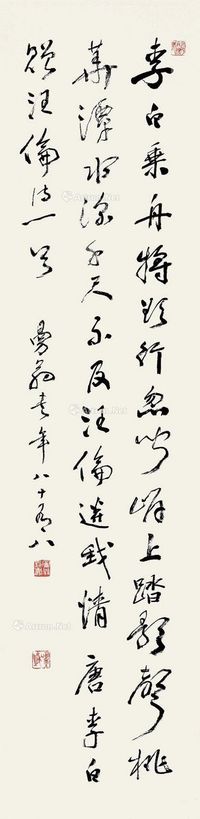 李白乘舟將欲行忽聞岸上踏歌聲桃
華潭水深千尺不及汪倫送我情 唐李白
贈汪倫詩一首 曼翁 年八十有八